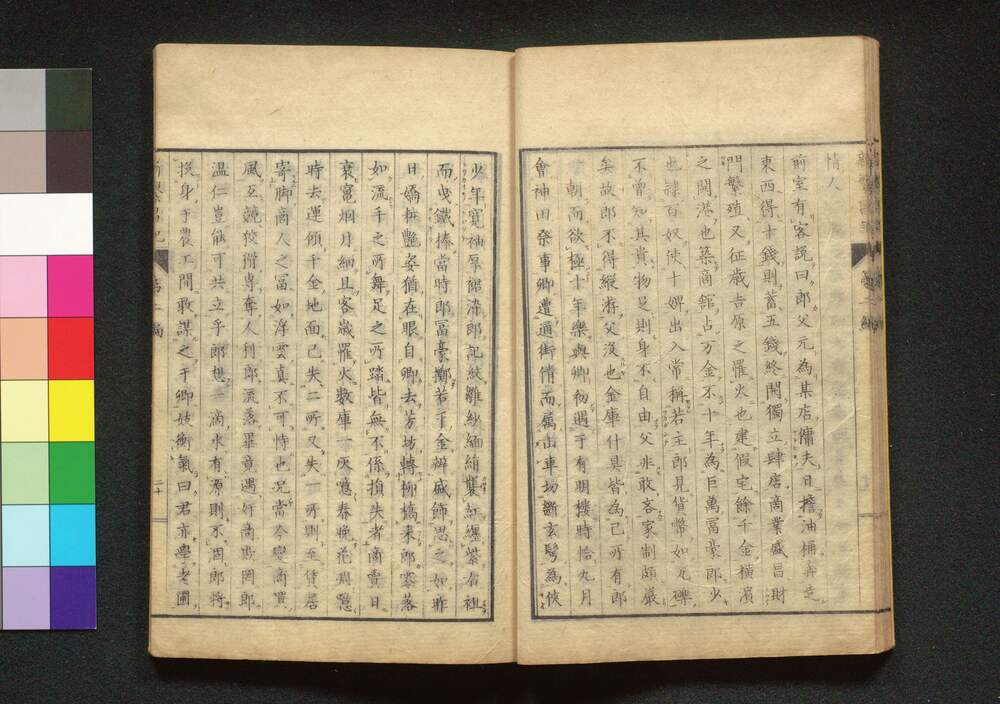 情人
前室有客説曰郎父元為某店傭夫日擔油桶奔走
東西得十錢則蓄五錢終開獨立肆店商業盛昌財
門繁殖又征歳吉原之罹火也建假宅餘千金横濱
之開港也築商館占万金不十年為巨萬冨豪郎少
也隷百奴使十婢出入常稱若主郎見貨幣如瓦礫
不曽知其貴物足則身不自由父非敢吝家制頗嚴
矣故郎不得縦游父没也金庫什具皆為己所有郎
一朝而欲極十年樂與卿初遇于有明樓時恰九月
會神田祭事卿遭通街情而属山車切斷玄髩為侠
少年寛袖厚
而曳鐵捧當時郎冨豪擲若干金辨盛飾思之如昨
日嬌粧艶姿猶在眼自卿去芳坊轉柳橋来郎零落
如流手之所舞足之所踏皆無不係損失者商賣日
衰竃烟月細且客歳罹火數庫一灰
時去運傾千金地面已失二所又失一所則至借居
寄脚商人之冨如浮雲真不可恃也况當今
風互競狡獪専奪人利郎流落畢竟遇奸商
温仁豈能可共立乎郎想一滴水有源則不涸郎将
投身于農工間敢謀之于卿妓衝氣曰君亦學老圃
第二編
二十